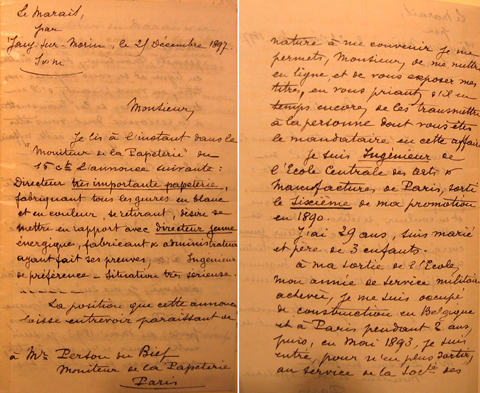 Le Marais,
par
Jouy-sur-Morin, le 25 Décembre 1897.
S. & M.
Monsieur,
Je lis à l'instant dans le
"Moniteur de la Papeterie" du
15 ct l'annonce suivante :
Directeur très importante papeterie,
fabriquant tous les genres en blanc
et en couleur, se retirant, désire se
mettre en rapport avec directeur jeune
énergique, fabricant & administrateur
ayant fait ses preuves, Ingénieur
de préférence - Situation très sérieuse.
La position que cette annonce
laisse entrevoir paraissant de
à Mr Person du Bief
Moniteur de la Papeterie
Paris
nature à me convenir je me
permets, Monsieur, de me mettre
en ligne, et de vous exposer mes
titres, en vous priant, s'il en
temps encore, de les transmettre
à la personne dont vous êtes
le mandataire en cette affaire
Je suis Ingénieur de
l'Ecole Centrale des Arts &
Manufactures de Paris, sorti
le sixième de ma promotion
en 1890.
J'ai 29 ans, suis marié
et père de 3 enfants.
à ma sortie de l'Ecole,
mon année de service militaire
achevée, je me suis occupé
de construction en Belgique
et à Paris pendant 2 ans,
puis, en Mai 1893, je suis
entré, pour n'en plus sortir,
au service de la Socté des